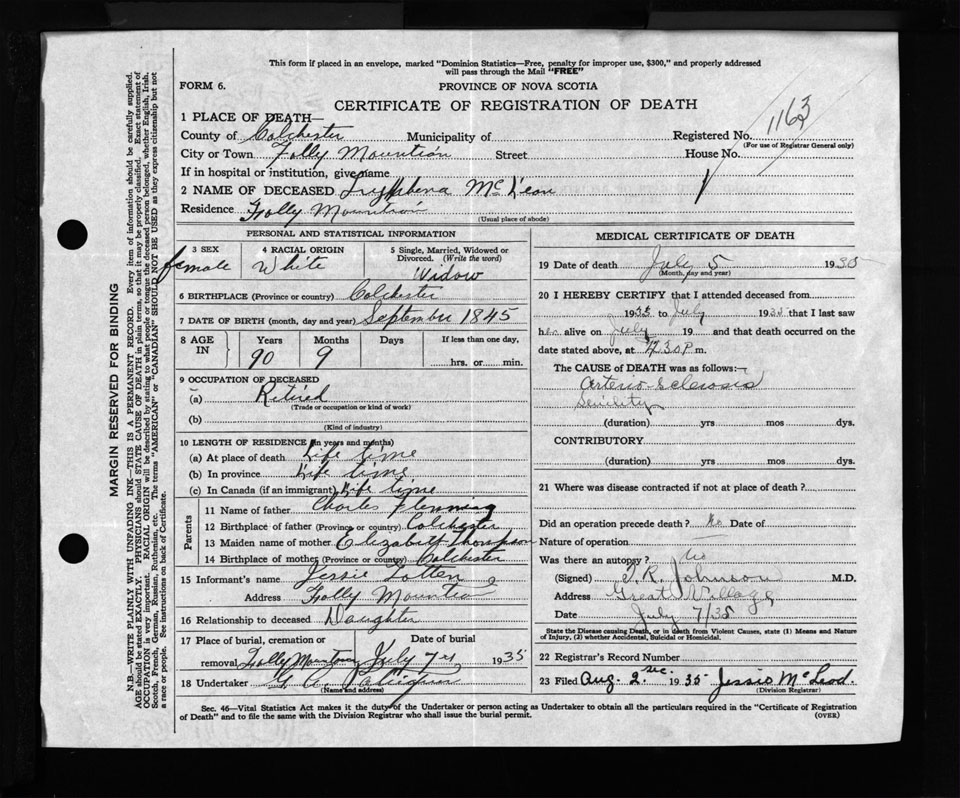 This form if placed in an envelope, marked "Dominion Statistics—Free, penalty for improper use, $300," and properly addressed
will pass through the Mail "FREE"
FORM 6.
PROVINCE OF NOVA SCOTIA
CERTIFICATE OF REGISTRATION OF DEATH
1 PLACE OF DEATH—
County of Colchester Municipality of Registered No. 1163
(For use of Registrar General only)
City or Town Folly Mountian Street House No.
If in hospital or institution, give name
2 NAME OF DECEASED Tryphena Mc Lean
Residence Folly Mountian
(Usual place of abode)
PERSONAL AND STATISTICAL INFORMATION
3 SEX 4 RACIAL ORIGIN 5 Single, Married, Widowed or
Divorced. (Write the word)
female White Widow
6 BIRTHPLACE (Province or country) Colchester
7 DATE OF BIRTH (month, day and year) September 1845
8 AGE IN Years Months Days If less than one day,
90 9 hrs. or min.
9 OCCUPATION OF DECEASED
(a) Retired
(Trade or occupation or kind of work)
(b)
(Kind of industry)
10 LENGTH OF RESIDENCE (in years and months)
(a) At place of death Life time
(b) In province Life time
(c) In Canada (if an immigrant) Life time
Parents
11 Name of father Charles Flemming
12 Birthplace of father (Province or country) Colchester
13 Maiden name of mother Elizabeth Thompson
14 Birthplace of mother (Province or country) Colchester
15 Informant's name Jessie Totten
Address Folly Mountian
16 Relationship to deceased Daughter
17 Place of burial, cremation or Date of burial
removal Folly Mountian July 7 1935
18 Undertaker
(Name and address)
MEDICAL CERTIFICATE OF DEATH
19 Date of death July 5 1935
(Month, day and year)
20 I HEREBY CERTIFY that I attended deceased from
1935 to July 1935 that I last saw
her alive on July 19 and that death occurred on
date stated above, at 30 P. m.
The CAUSE OF DEATH was as follows:—
Arterio-sclerosis
Senility
(duration) yrs mos dys.
CONTRIBUTORY
(duration) yrs. mos. dys.
21 Where was disease contracted if not at place of death?
Did an operation precede death? No Date of
Nature of operation
Was there an autopsy? no
(Signed) T. R. Johnson M.D.
Address Great Village
Date July 7/35
State the Disease causing Death, or in death from Violent Causes, state (1) Means and Nature
of Injury, (2) whether Accidental, Suicidal or Homicidal.
22 Registrar's Record Number
23 Filed Aug. 2 1935 Jessie McLeod.
(Division Registrar)
Sec. 46—Vital Statistics Act makes it the duty of the Undertaker or person acting as Undertaker to obtain all the particulars required in the "Certificate of Registration
of Death" and to file the same with the Division Registrar who shall issue the burial permit.
(OVER)
MARGIN RESERVED FOR BINDING
N.B.—WRITE PLAINLY WITH UNFADING INK—THIS IS A PERMANENT RECORD. Every item of information should be carefully supplied.
AGE should be stated EXACTLY. PHYSICIANS should STATE CAUSE OF DEATH in plain terms, so that it may be properly classified. Exact statement of
OCCUPATION is very important. RACIAL ORIGIN will be described by stating to what people or tongue the deceased person belonged, whether English, Irish,
Scotch, French, German, Russian, Ruthenian, etc. The terms "AMERICAN" or "CANADIAN" SHOULD NOT BE USED as they express citizenship but not
a race or people. See instructions on back of Certificate.